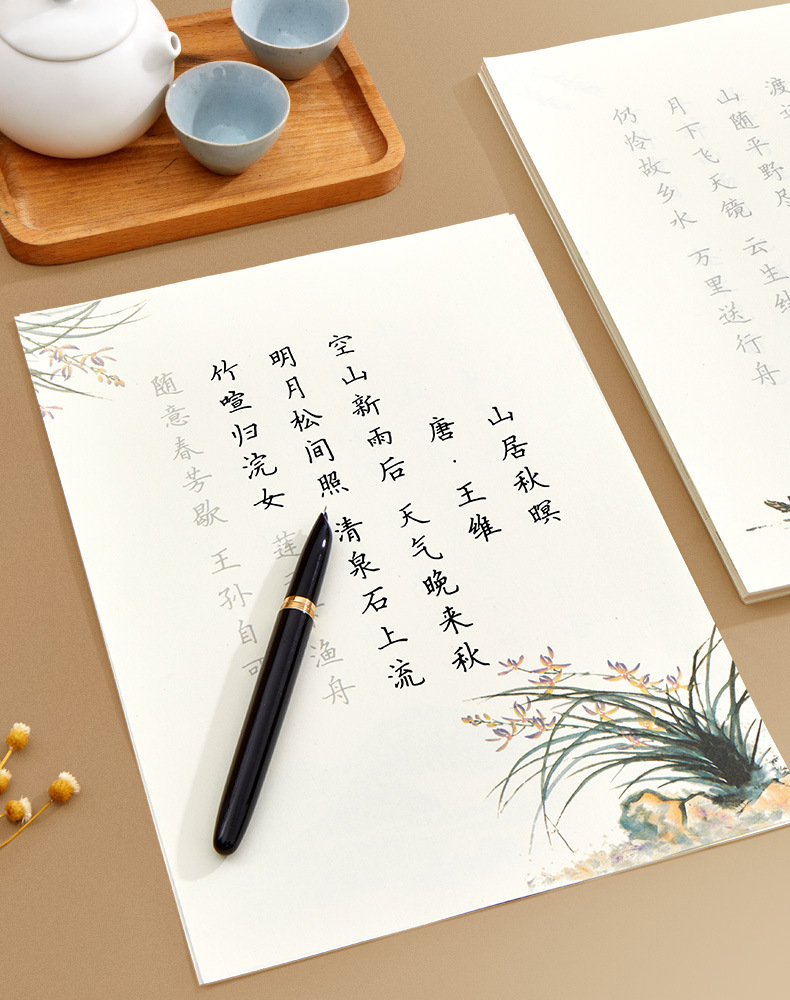 山居秋暝
唐·王维
空山新雨后 天气晚来秋
明月松间照 清泉石上流
竹喧归浣女 莲 渔舟
随意春芳歇 王孙自可
渡
山随平野尽
月下飞天镜 云生结
仍怜故乡水 万里送行舟